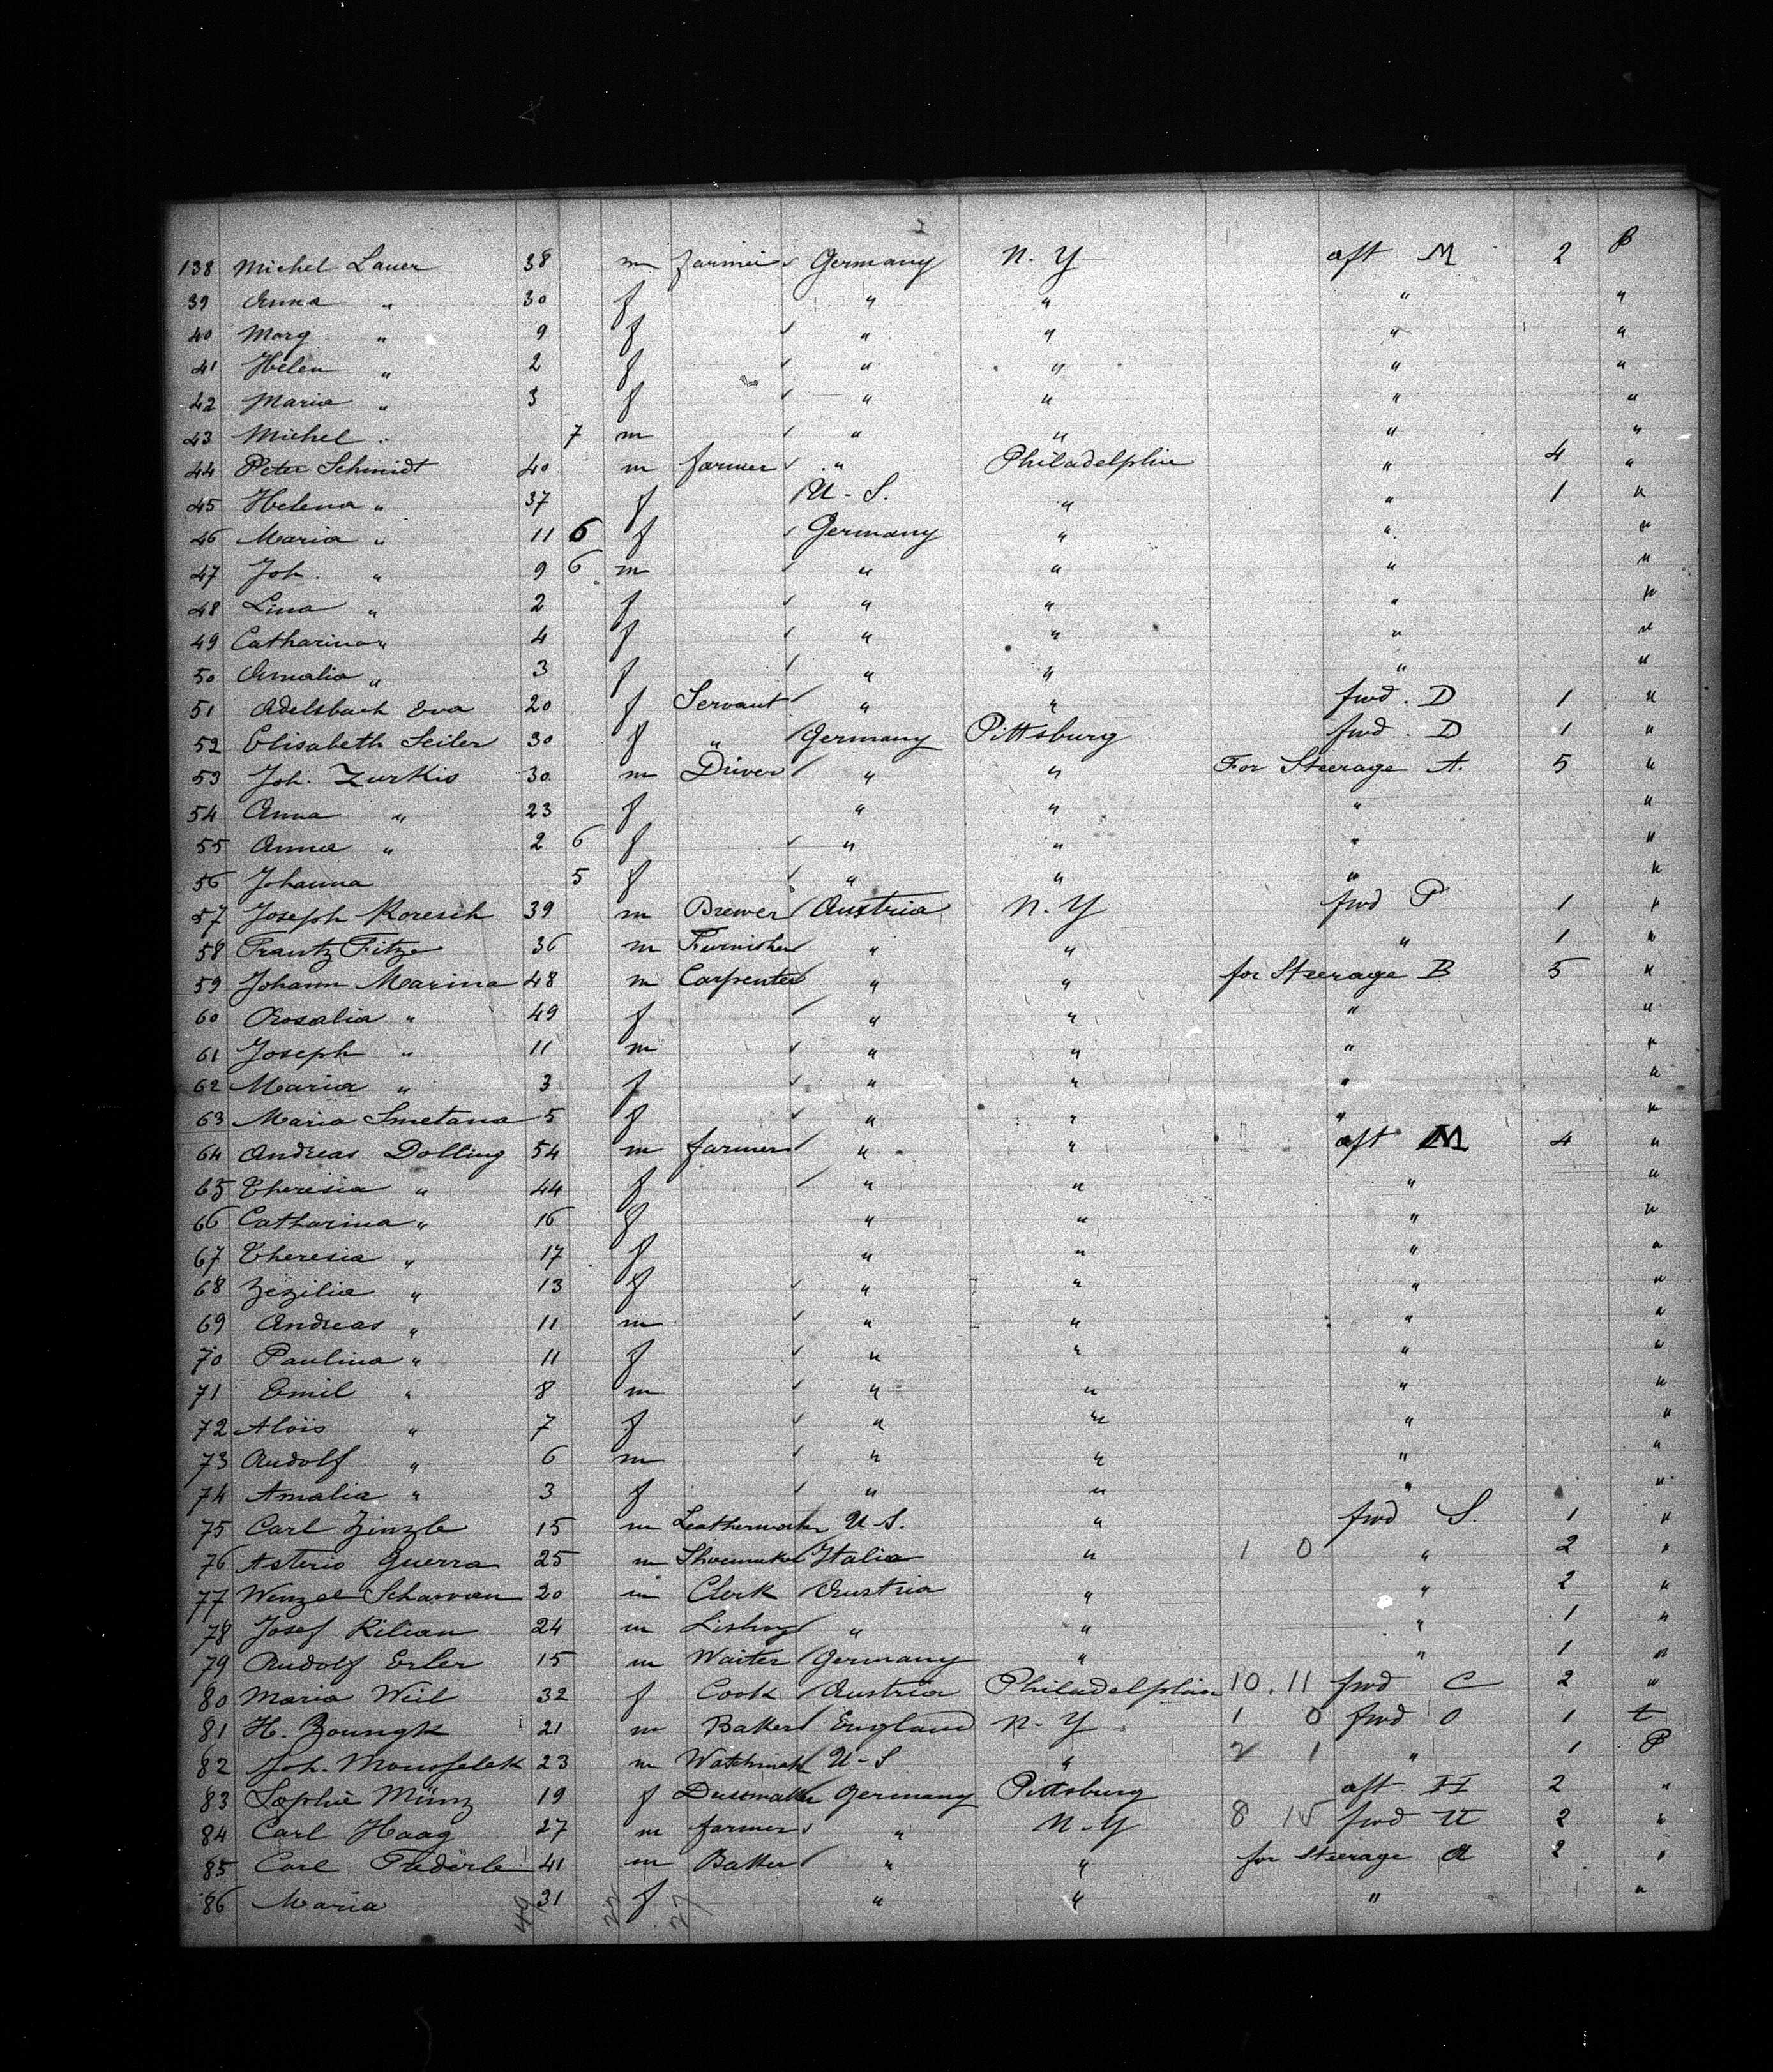 138 Michel Lauer 38 m farmer ✓ Germany N. Y aft M 2 P
39 Anna " 30 f " " " "
40 Marg " 9 f ✓ " " " "
41 Helen " 2 f ✓ " " " "
42 Maria " 3 f ✓ " " " "
43 Michel " 7 m ✓ " " " "
44 Peter Schmidt 40 m farmer ✓ " Philadelphia " 4 "
45 Helena " 37 f / U-S. " " 1 "
46 Maria " 11 6 f ✓ Germany " " "
47 Joh. " 9 6 m ✓ " " " "
48 Lina " 2 f ✓ " " " "
49 Catharina " 4 f ✓ " " " "
50 Amalia " 3 f / " " " "
51 Adelsbach Eva 20 f Servant / " " fwd. D 1 "
52 Elisabeth Seiler 30 f " / Germany Pittsburg fwd. D 1 "
53 Joh. Zurkis 30 m Driver / " " For Steerage A. 5 "
54 Anna " 23 f " " " "
55 Anna " 2 6 f ✓ " " " "
56 Johanna 5 f ✓ " " " "
57 Joseph Koresch 39 m Brewer / Austria N. Y fwd P 1 "
58 Frantz Fitze 36 m Furnisher / " " " 1 "
59 Johann Marina 48 m Carpenter / " " for Steerage B 5 "
60 Rosalia " 49 f / " " " "
61 Joseph " 11 m ✓ " " " "
62 Maria " 3 f ✓ " " " "
63 Maria Smetana 5 f ✓ " " " "
64 Andreas Dolling 54 m farmer / " " aft M 4 "
65 Theresia " 44 f / " " " "
66 Catharina " 16 f " " " "
67 Theresia " 17 f " " " "
68 Zezilia " 13 f ✓ " " " "
69 Andreas " 11 m ✓ " " " "
70 Paulina " 11 f ✓ " " " "
71 Emil " 8 m ✓ " " " "
72 Alois " 7 f ✓ " " " "
73 Rudolf " 6 m ✓ " " " "
74 Amalia " 3 f ✓ " " " "
75 Carl Zinzle 15 m Leatherworker U-S. " fwd S. 1 "
76 Asterio Guerra 25 m Shoemaker / Italia " 1 0 " 2 "
77 Wenzel Scharvan 20 m Clerk / Austria " " 2 "
78 Josef Kilian 24 m / " " " 1 "
79 Rudolf Erler 15 m Waiter / Germany " " 1 "
80 Maria Weil 32 f Cook / Austria Philadelphia 10. 11 fwd C 2 "
81 H. Zoungk 21 m Baker / England N-Y 1 0 fwd O 1 t
82 Joh. 23 m Watchmak / U-S " 2 1 " 1 P
83 Sophie Münz 19 f Dressmaker / Germany Pittsburg aft H 2 "
84 Carl Haag 27 m farmer ✓ " N-Y 8 15 fwd U 2 "
85 Carl Federle 41 m Baker / " " for Steerage A 2 "
86 Maria 31 f " " " "
49 22 27